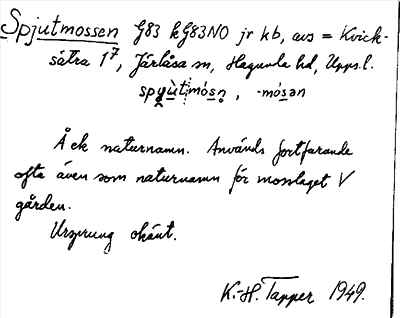 Spjutmossen G83 k G83NO jr kb, avs = Kvick-
sätra 1⁷, Järlåsa sn, Hagunda hd, Upps.l.
, -mósən
Äck naturnamn. Används fortfarande
ofta även som naturnamn för mosslaget V
gården.
Ursprung okänt.
K.-H. Tapper 1949.